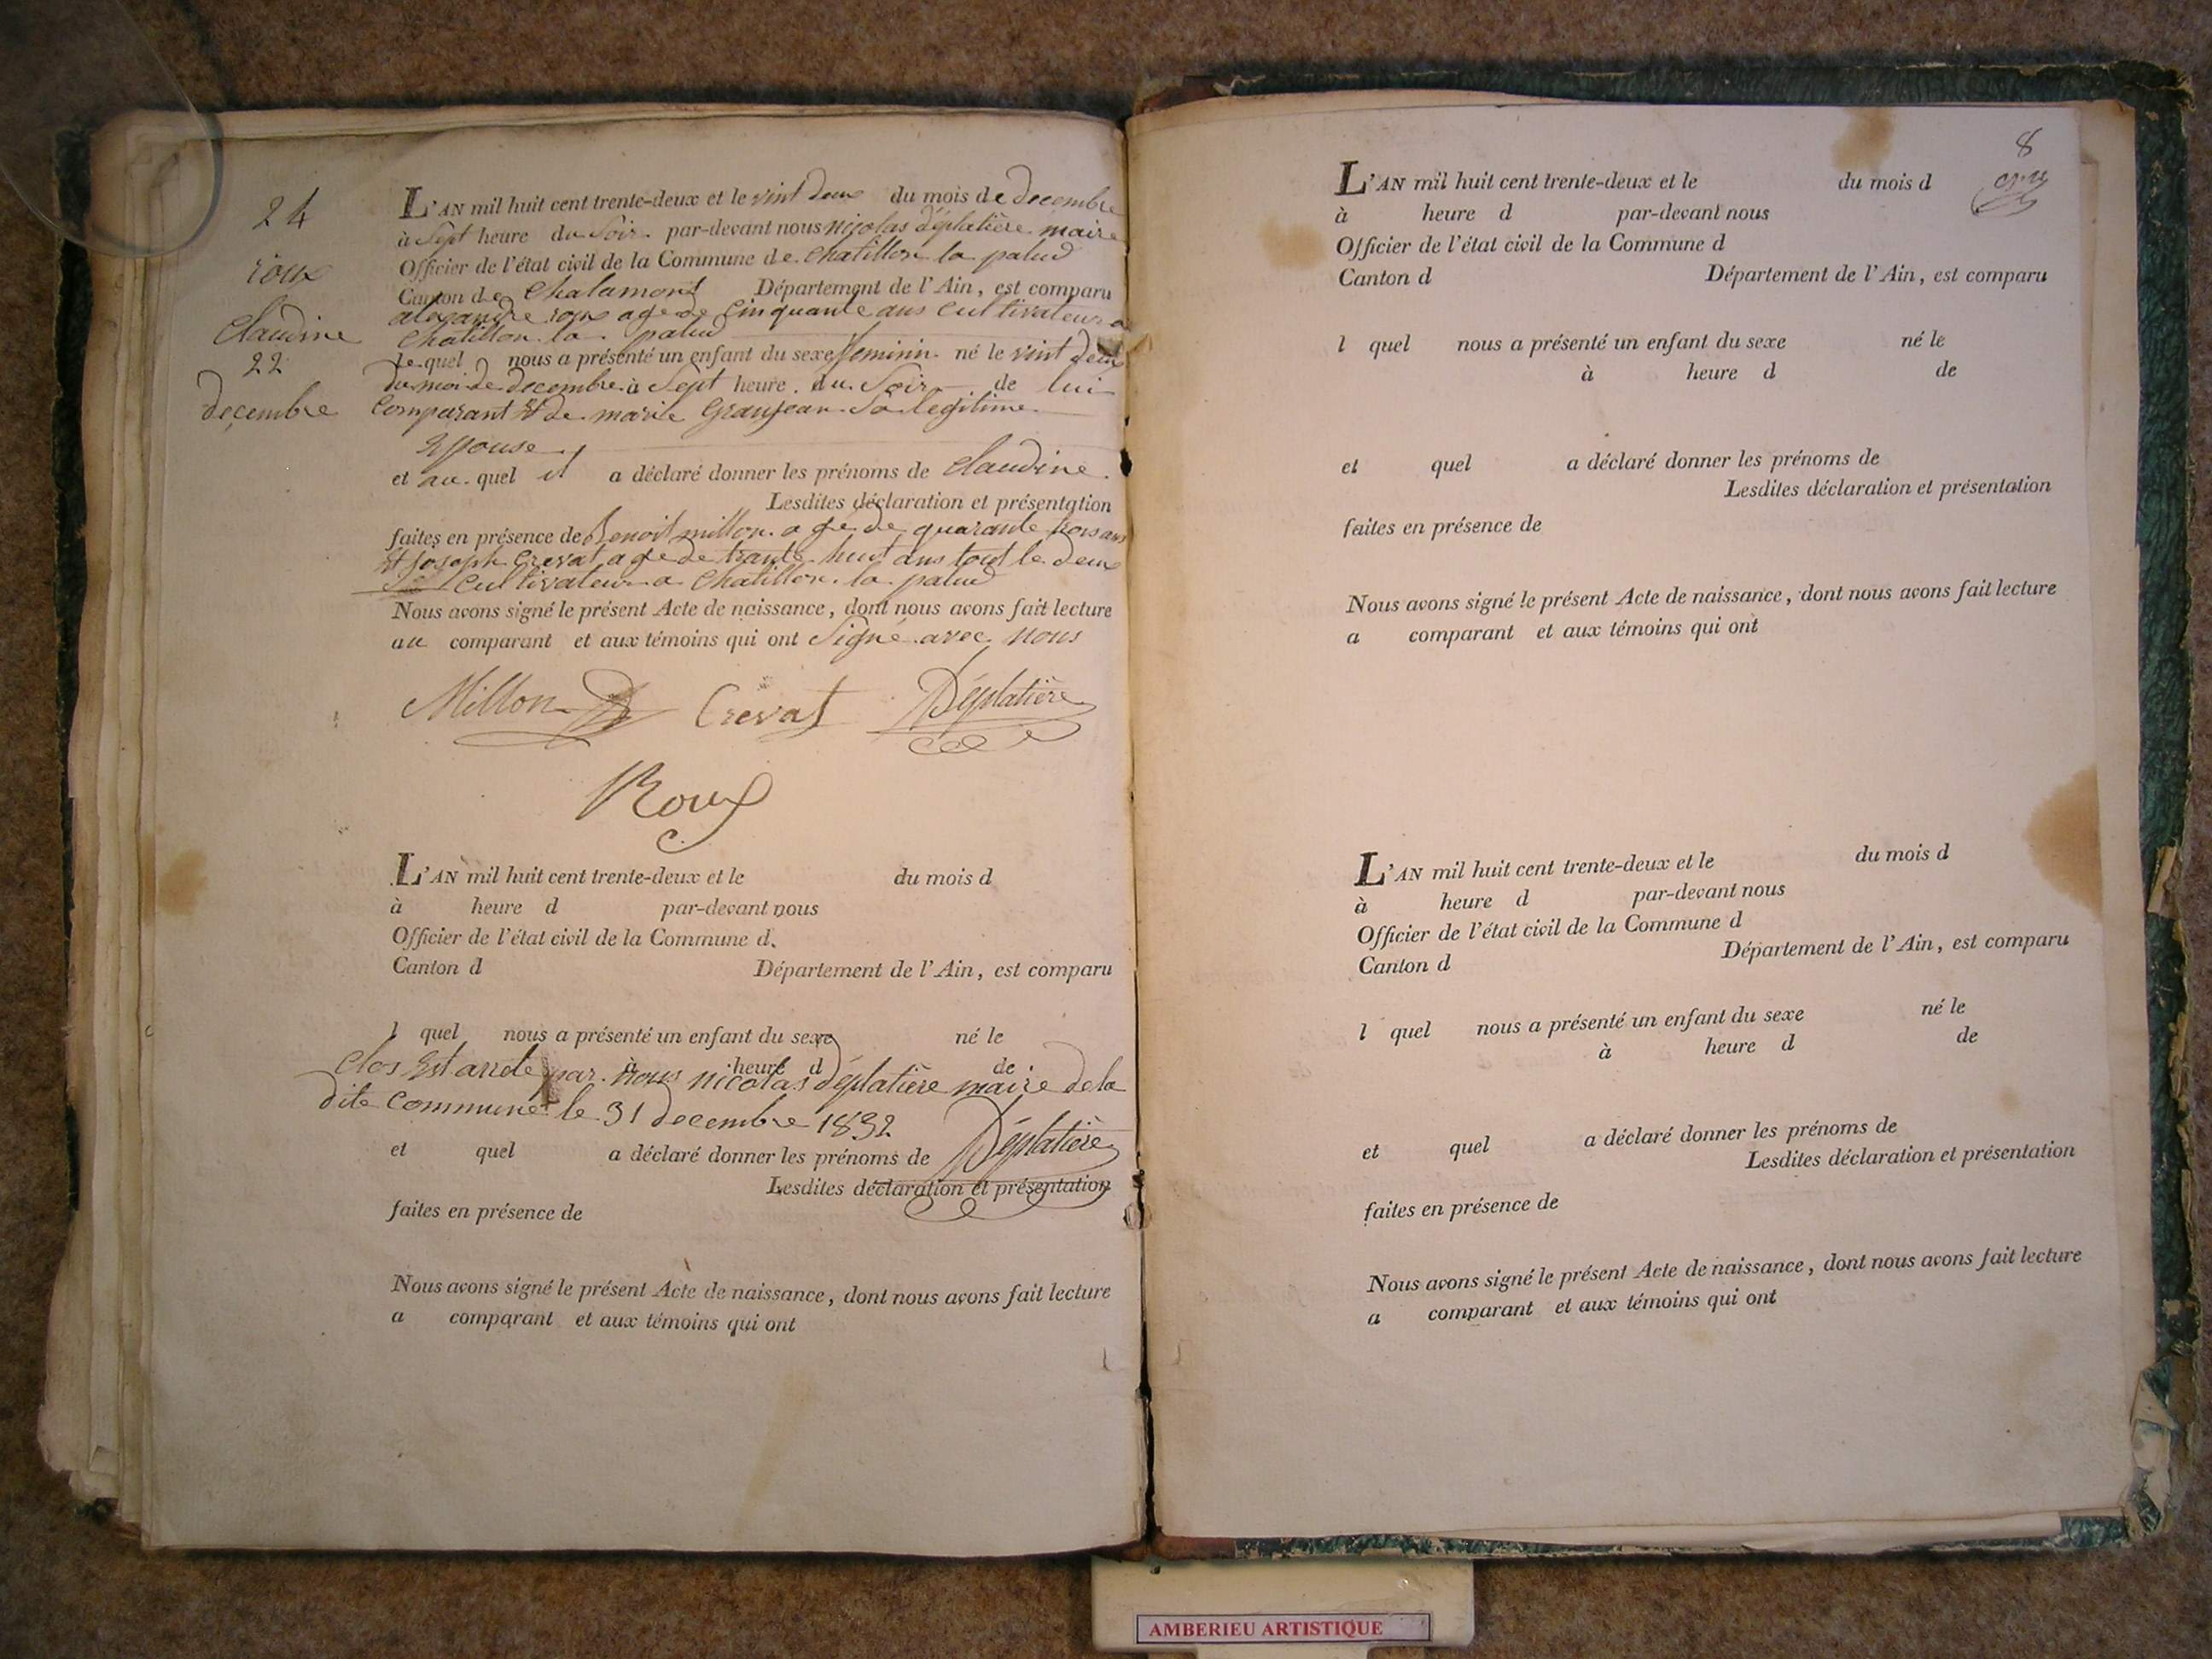 24
roux
Claudine
22
decembre
L'AN mil huit cent trente-deux et le vint deux du mois de decembre
à Sept heure du Soir par-devant nous nicolas déplatière maire
Officier de l'état civil de la Commune de Chatillon la palud
Canton de Chalamont Département de l'Ain, est comparu
alexandre roux age de Cinquante ans cultivateur a
Chatillon la palud
Le quel nous a présenté un enfant du sexe feminin né le vint deux
du moi de decembre à Sept heure du Soir de lui
Comparant Et de marie Granjean Sa legitime
Epouse
et au quel il a déclaré donner les prénoms de Claudine.
Lesdites déclaration et présentation
faites en présence de Benoit millon age de quarante trois ans
Et joseph Crevat age de trante huit ans tout le deux
cultivateur a Chatillon la palud
Nous avons signé le présent Acte de naissance, dont nous avons fait lecture
au comparant et aux témoins qui ont Signé avec nous
Millon Crevat Déplatière
Roux
L'AN mil huit cent trente-deux et le du mois d
à heure d par-devant nous
Officier de l'état civil de la Commune d
Canton d Département de l'Ain, est comparu
l quel nous a présenté un enfant du sexe né le
à heure d de
Clos Et arrete par nous nicolas déplatière maire de la
dite Commune le 31 decembre 1832
Déplatière
et quel a déclaré donner les prénoms de
Lesdites déclaration et présentation
faites en présence de
Nous avons signé le présent Acte de naissance, dont nous avons fait lecture
a comparant et aux témoins qui ont
8
L'AN mil huit cent trente-deux et le du mois d
à heure d par-devant nous
Officier de l'état civil de la Commune d
Canton d Département de l'Ain, est comparu
l quel nous a présenté un enfant du sexe né le
à heure d de
et quel a déclaré donner les prénoms de
Lesdites déclaration et présentation
faites en présence de
Nous avons signé le présent Acte de naissance, dont nous avons fait lecture
a comparant et aux témoins qui ont
L'AN mil huit cent trente-deux et le du mois d
à heure d par-devant nous
Officier de l'état civil de la Commune d
Canton d Département de l'Ain, est comparu
l quel nous a présenté un enfant du sexe né le
à heure d de
et quel a déclaré donner les prénoms de
Lesdites déclaration et présentation
faites en présence de
Nous avons signé le présent Acte de naissance, dont nous avons fait lecture
a comparant et aux témoins qui ont
AMBERIEU ARTISTIQUE